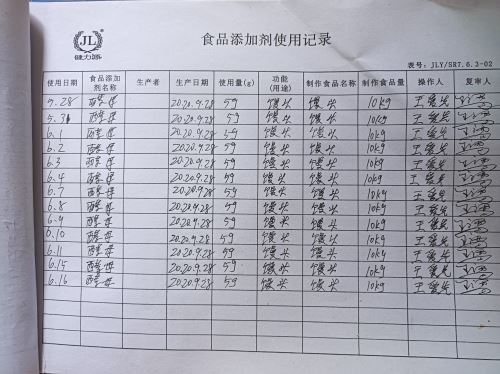 JL
健力源
食品添加剂使用记录
表号: JLY/SR7.6.3-02
使用日期 食品添加剂名称 生产者 生产日期 使用量(g) 功能(用途) 制作食品名称 制作食品量 操作人 复审人
5.28 酵母 2020.9.28 5g 馒头 馒头 10kg
5.31 酵母 2020.9.28 5g 馒头 馒头 10kg
6.1 酵母 2020.9.28 5g 馒头 馒头 10kg
6.2 酵母 2020.9.28 5g 馒头 馒头 10kg
6.3 酵母 2020.9.28 5g 馒头 馒头 10kg
6.4 酵母 2020.9.28 5g 馒头 馒头 10kg
6.7 酵母 2020.9.28 5g 馒头 馒头 10kg
6.8 酵母 2020.9.28 5g 馒头 馒头 10kg
6.9 酵母 2020.9.28 5g 馒头 馒头 10kg
6.10 酵母 2020.9.28 5g 馒头 馒头 10kg
6.11 酵母 2020.9.28 5g 馒头 馒头 10kg
6.15 酵母 2020.9.28 5g 馒头 馒头 10kg
6.16 酵母 2020.9.28 5g 馒头 馒头 10kg